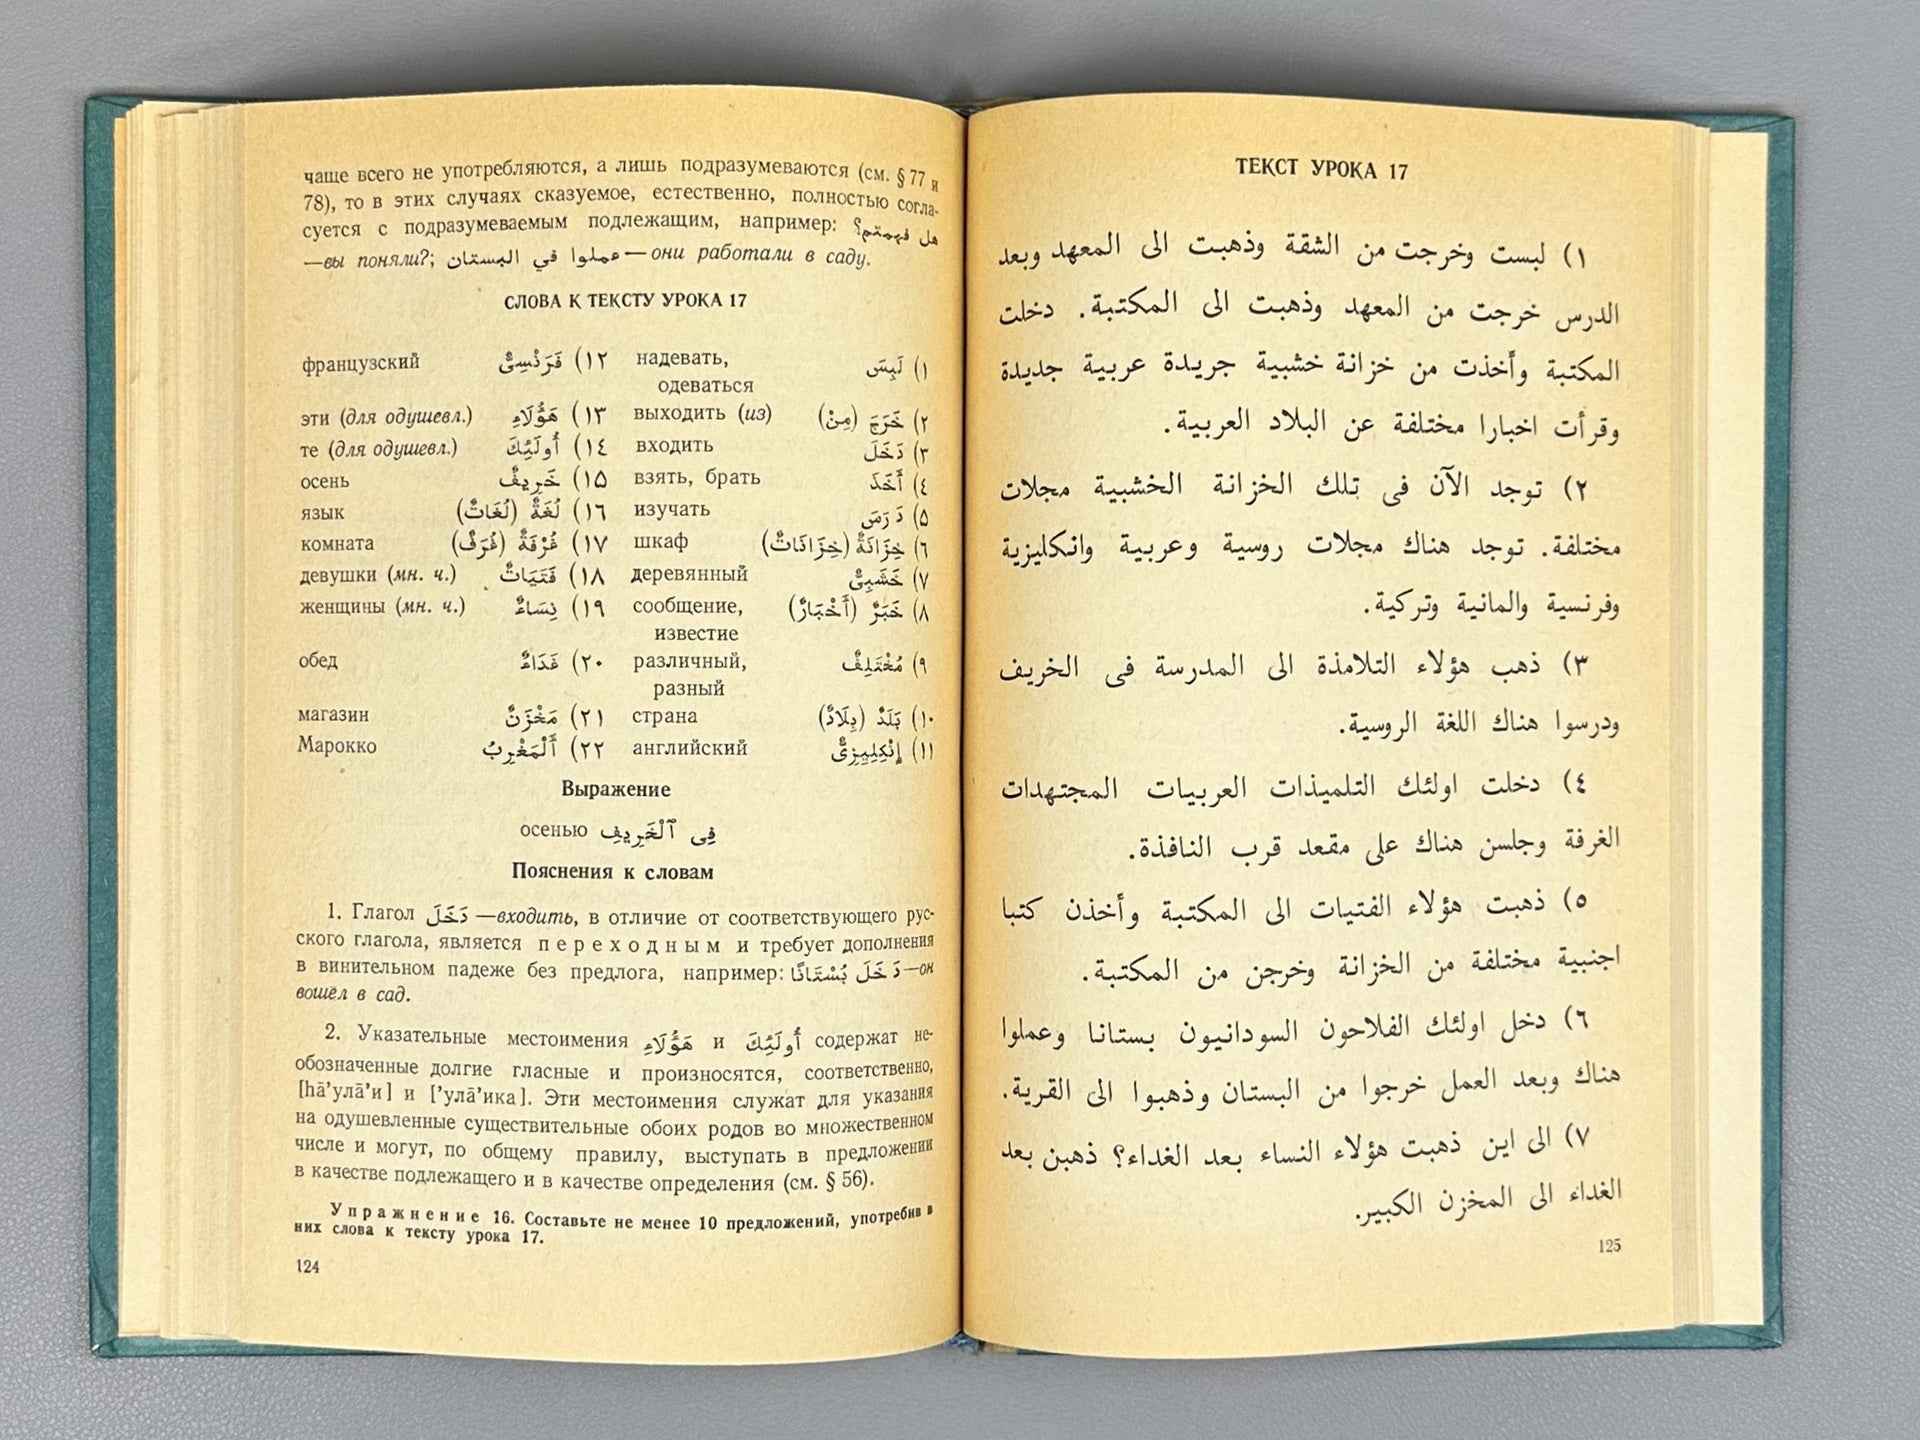 чаще всего не употребляются, а лишь подразумеваются (см. § 77 и
78), то в этих случаях сказуемое, естественно, полностью согла-
суется с подразумеваемым подлежащим, например: هل فهمتم؟
—вы поняли?; عملوا في البستان—они работали в саду.
СЛОВА К ТЕКСТУ УРОКА 17
французский ١٢) فَرَنْسِىٌّ надевать, ١) لَبِسَ
одеваться
эти (для одушевл.) ١٣) هَؤُلَاءِ выходить (из) ٢) خَرَجَ (مِنْ)
те (для одушевл.) ١٤) أُولَئِكَ входить ٣) دَخَلَ
осень ١٥) خَرِيفٌ взять, брать ٤) أَخَذَ
язык ١٦) لُغَةٌ (لُغَاتٌ) изучать ٥) دَرَسَ
комната ١٧) غُرْفَةٌ (غُرَفٌ) шкаф ٦) خِزَانَةٌ (خِزَانَاتٌ)
девушки (мн. ч.) ١٨) فَتَيَاتٌ деревянный ٧) خَشَبِىٌّ
женщины (мн. ч.) ١٩) نِسَاءٌ сообщение, ٨) خَبَرٌ (أَخْبَارٌ)
известие
обед ٢٠) غَدَاءٌ различный, ٩) مُخْتَلِفٌ
разный
магазин ٢١) مَخْزَنٌ страна ١٠) بَلَدٌ (بِلَادٌ)
Марокко ٢٢) أَلْمَغْرِبُ английский ١١) إِنْكِلِيزِىٌّ
Выражение
осенью فِى ٱلْخَرِيفِ
Пояснения к словам
1. Глагол دَخَلَ —входить, в отличие от соответствующего рус-
ского глагола, является переходным и требует дополнения
в винительном падеже без предлога, например: دَخَلَ بُسْتَانًا—он
вошёл в сад.
2. Указательные местоимения هَؤُلَاءِ и أُولَئِكَ содержат не-
обозначенные долгие гласные и произносятся, соответственно,
[hā’улā’и] и [’улā’ика]. Эти местоимения служат для указания
на одушевленные существительные обоих родов во множественном
числе и могут, по общему правилу, выступать в предложении
в качестве подлежащего и в качестве определения (см. § 56).
Упражнение 16. Составьте не менее 10 предложений, употребив в
них слова к тексту урока 17.
124
ТЕКСТ УРОКА 17
١) لبست وخرجت من الشقة وذهبت الى المعهد وبعد
الدرس خرجت من المعهد وذهبت الى المكتبة. دخلت
المكتبة وأخذت من خزانة خشبية جريدة عربية جديدة
وقرأت اخبارا مختلفة عن البلاد العربية.
٢) توجد الآن فى تلك الخزانة الخشبية مجلات
مختلفة. توجد هناك مجلات روسية وعربية وانكليزية
وفرنسية والمانية وتركية.
٣) ذهب هؤلاء التلامذة الى المدرسة فى الخريف
ودرسوا هناك اللغة الروسية.
٤) دخلت اولئك التلميذات العربيات المجتهدات
الغرفة وجلسن هناك على مقعد قرب النافذة.
٥) ذهبت هؤلاء الفتيات الى المكتبة وأخذن كتبا
اجنبية مختلفة من الخزانة وخرجن من المكتبة.
٦) دخل اولئك الفلاحون السودانيون بستانا وعملوا
هناك وبعد العمل خرجوا من البستان وذهبوا الى القرية.
٧) الى اين ذهبت هؤلاء النساء بعد الغداء؟ ذهبن بعد
الغداء الى المخزن الكبير.
125